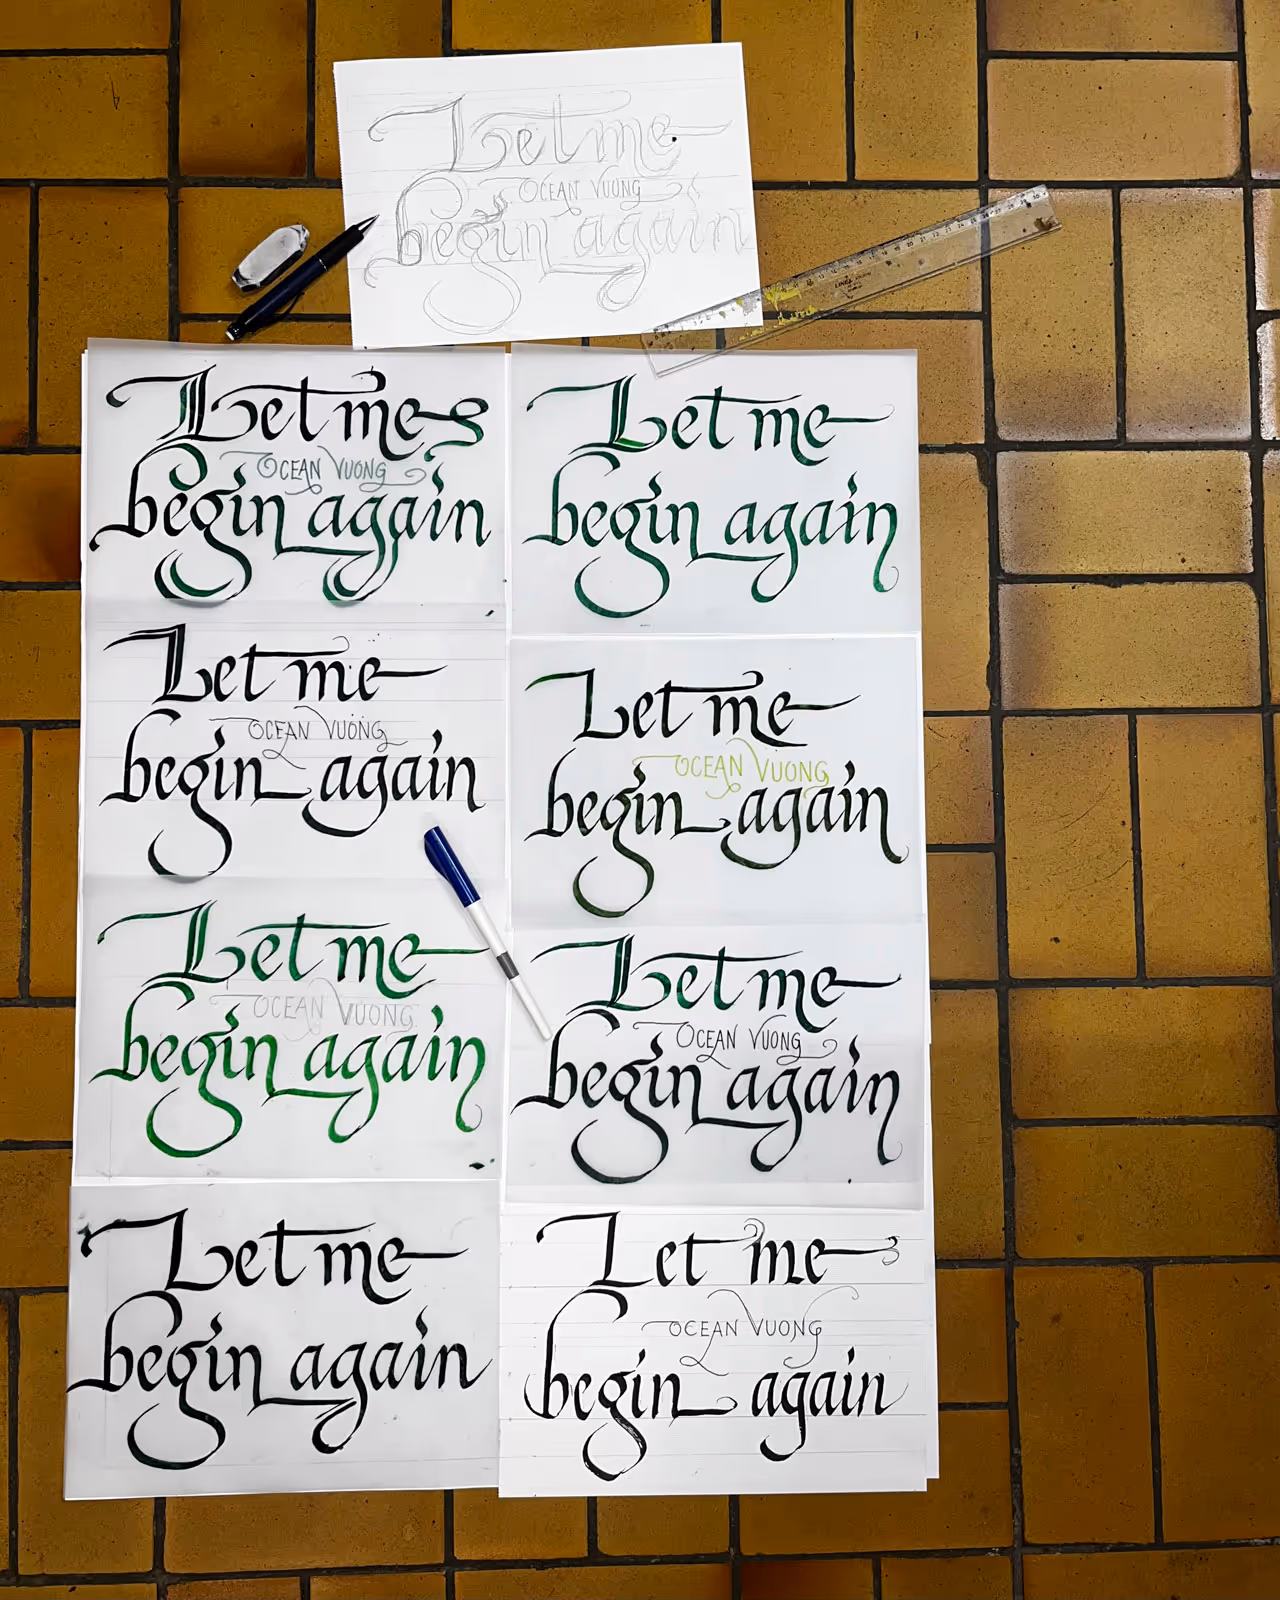 Let me
OCEAN VUONG
begin again
Let me
OCEAN VUONG
begin again
Let me
begin again
Let me
OCEAN VUONG
begin again
Let me
OCEAN VUONG
begin again
Let me
OCEAN VUONG
begin again
Let me
OCEAN VUONG
begin again
Let me
begin again
Let me
OCEAN VUONG
begin again